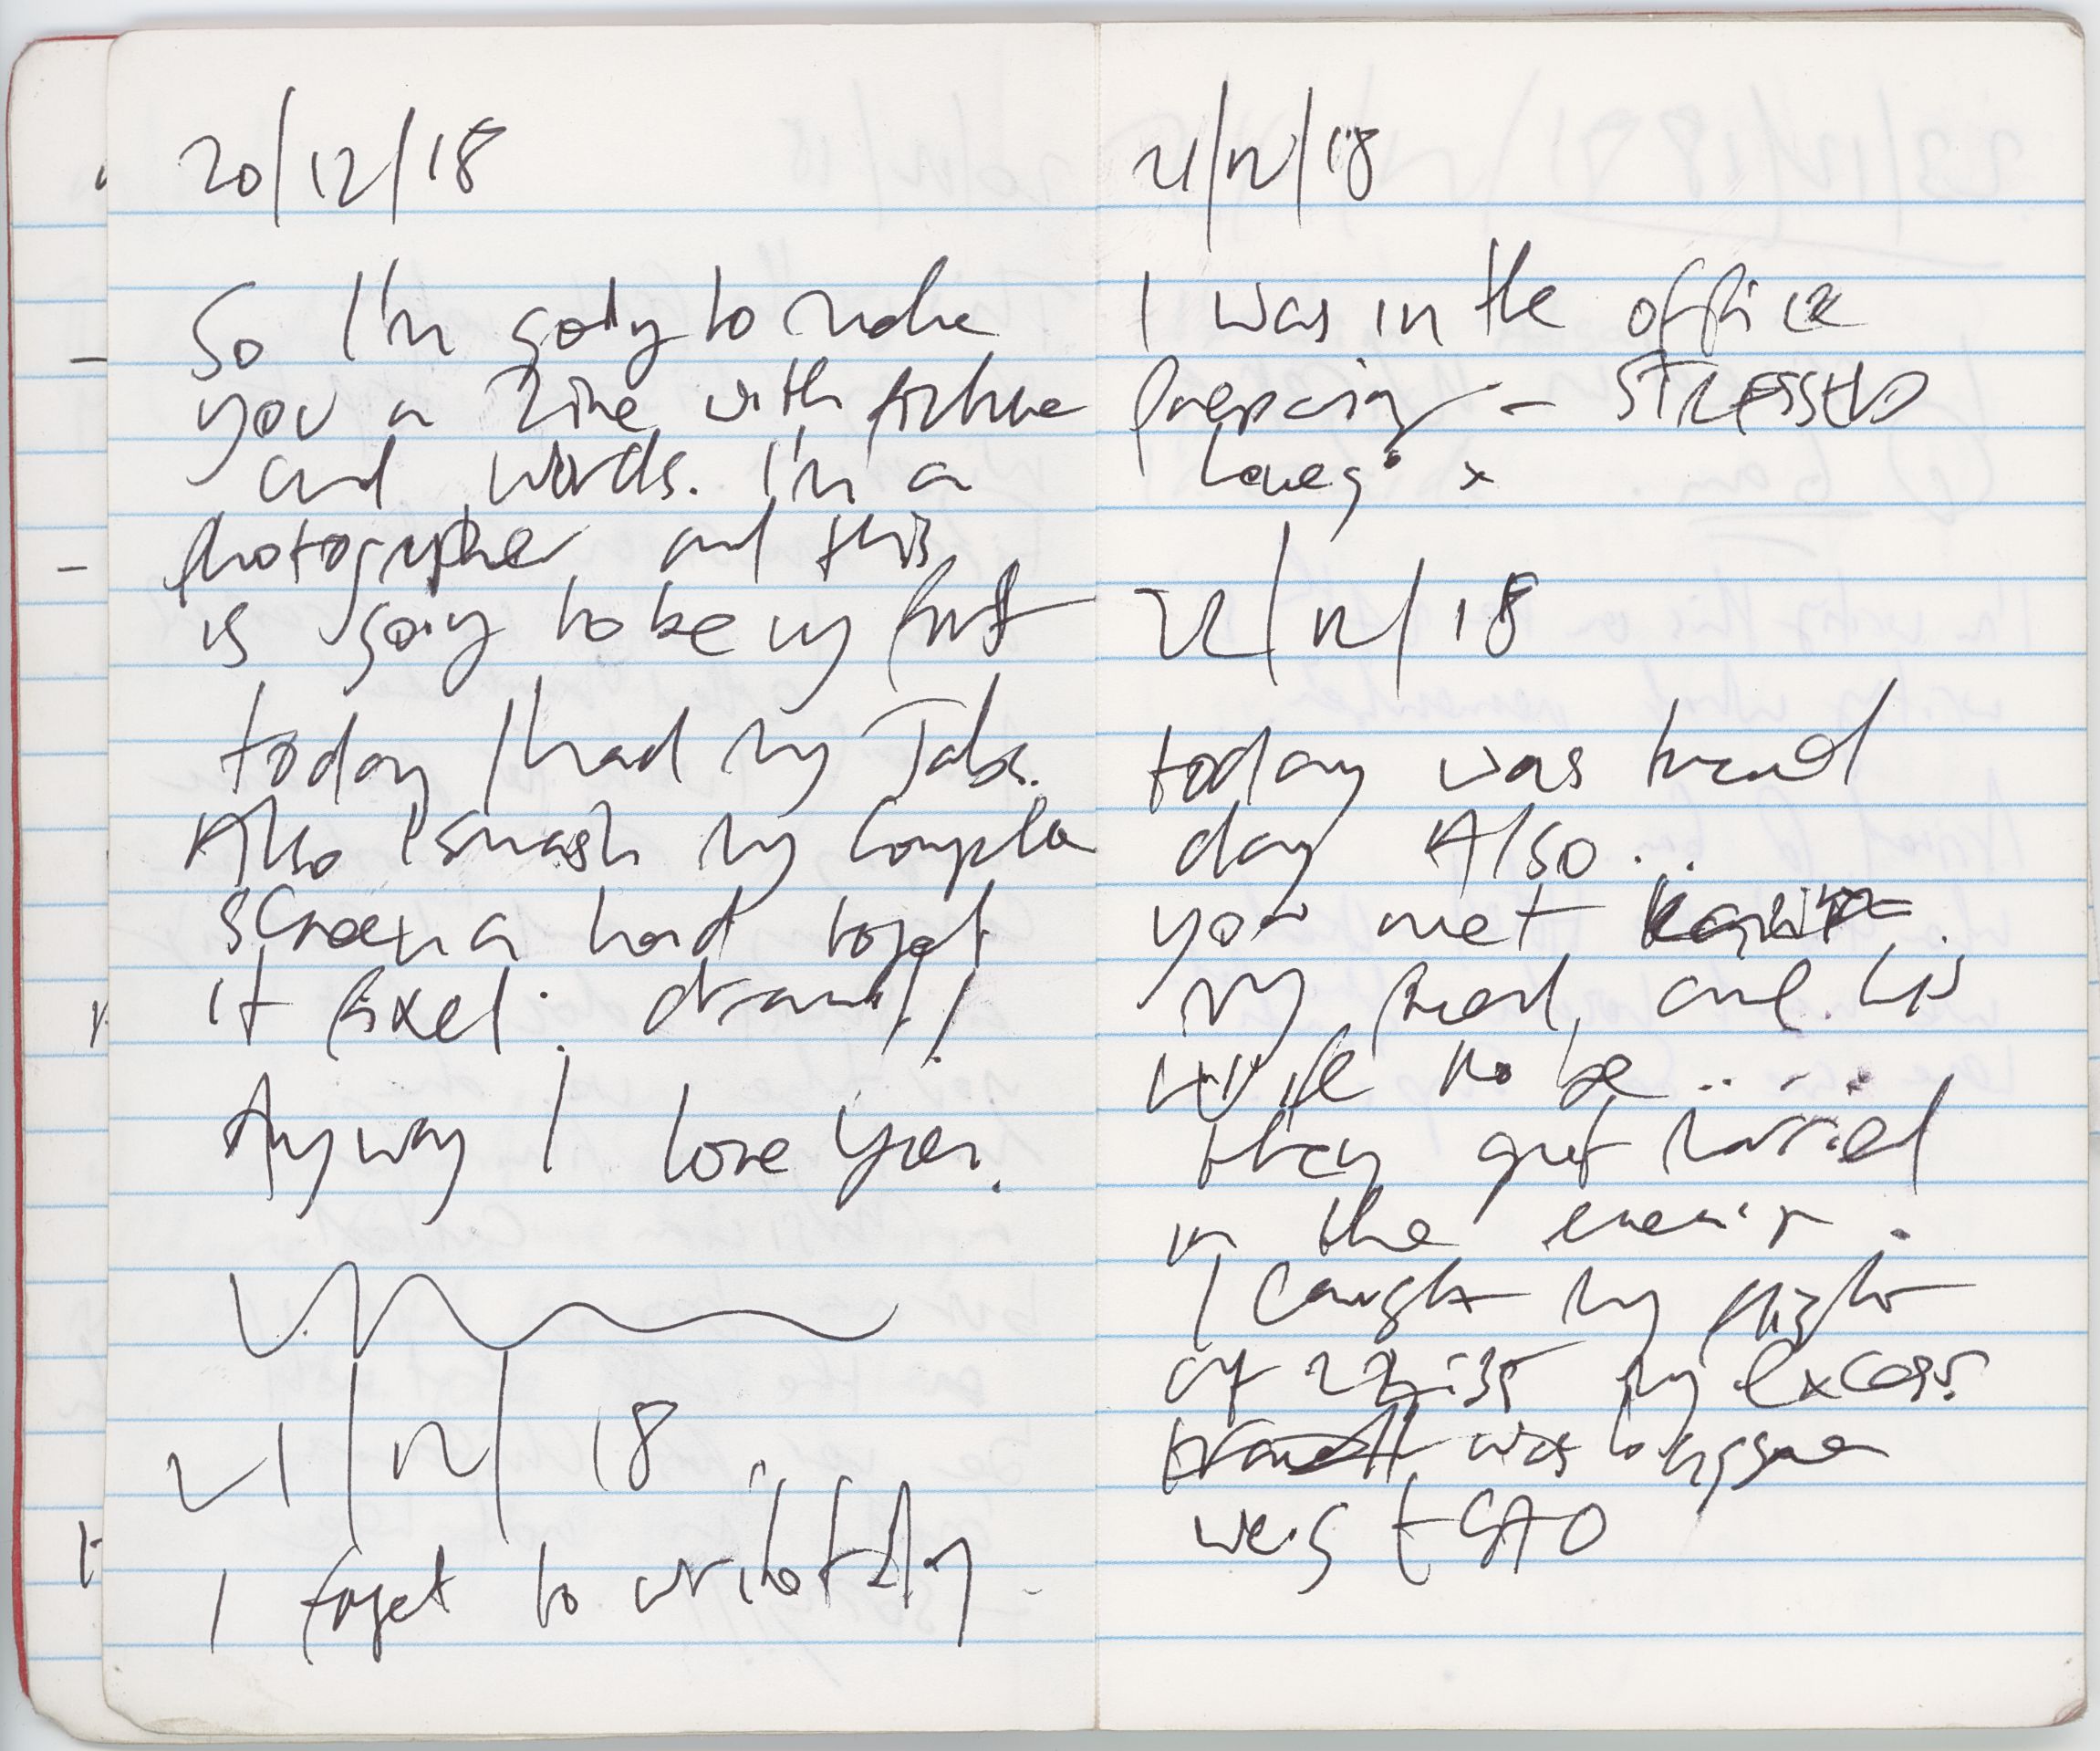 20/12/18
So I'm going to make
you a zine with picture
and words. I'm a
photographer and this
is going to be my first
today I had my Jabs.
Also I smash my
screen a had to get
it fixed. drama!!
Anyway I love you.
21/12/18
I forget to write
21/12/18
I was in the office
preparing - STRESSED
x
22/12/18
today was
day Also...
you met
my friend and his
wife to be ....
they get married
in the
I caught my flight
at my excess
was